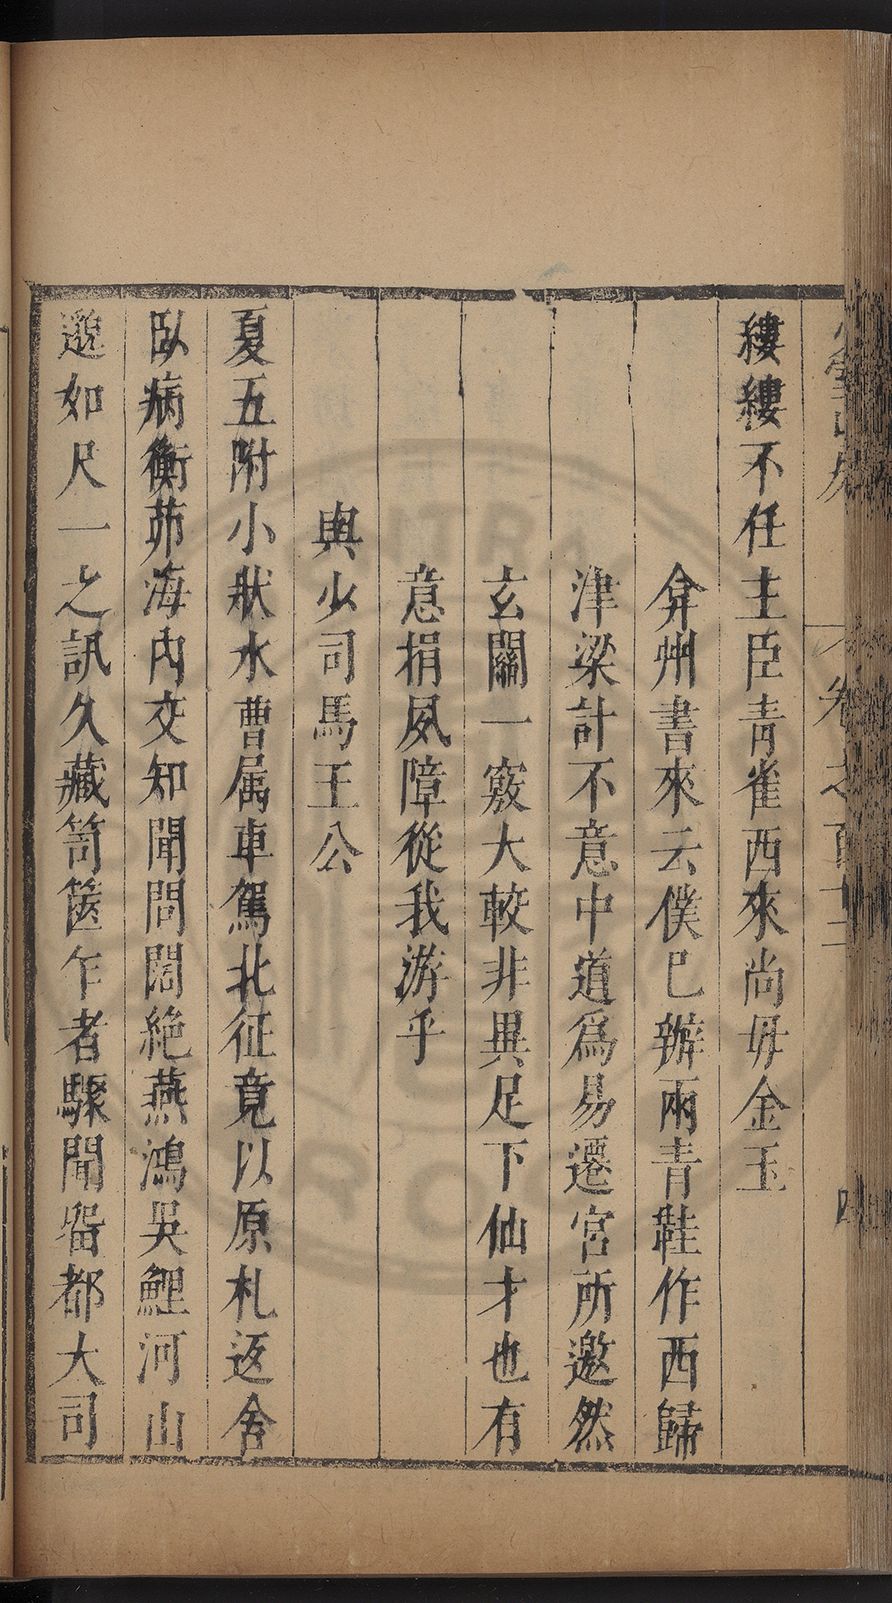 卷之百十二
四
縷縷不任主臣青雀西來尚毋金玉
弇州書來云僕已辦兩青鞋作西歸
津梁計不意中道為易遷宮所邀然
玄關一竅大較非異足下仙才也有
意捐夙障從我游乎
與少司馬王公
夏五附小狀水曹属車駕北征竟以原札返舍
臥病衡茆海內交知聞問闊絕燕鴻吳鯉河山
邈如尺一之訊久藏笥箧乍者驟聞留都大司